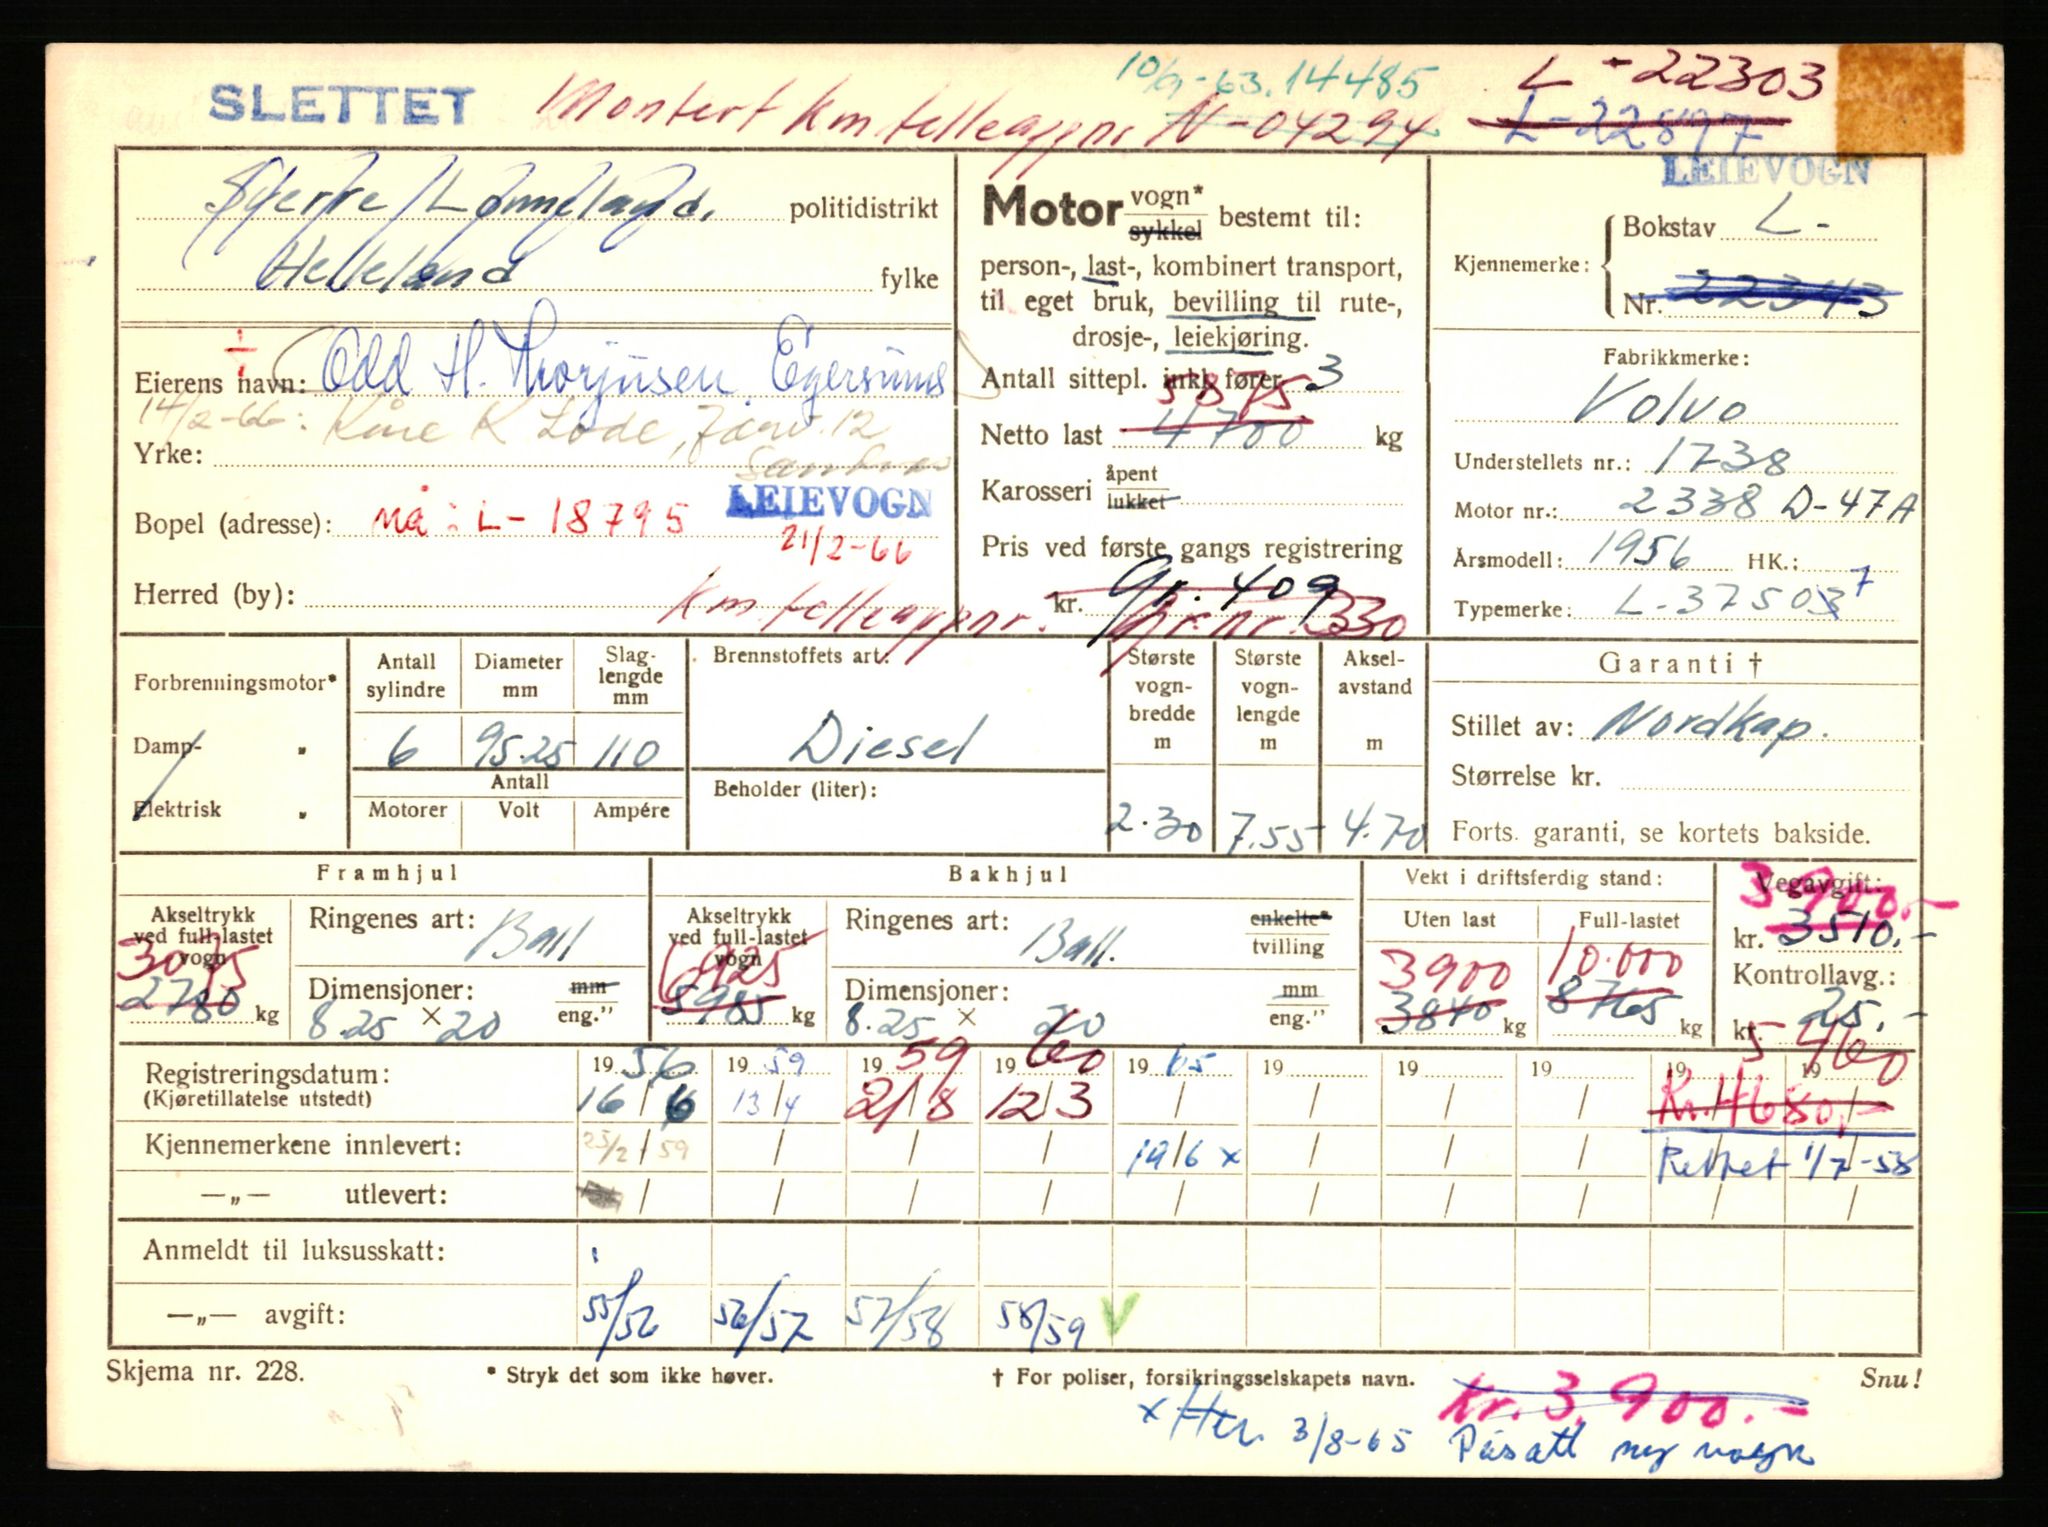 SLETTET Montert Km telleappnr N-04294
10/9-63. 14485
L-22303
L-22897
LEIEVOGN
politidistrikt
Helleland fylke
Motor vogn* sykkel bestemt til:
person-, last-, kombinert transport,
til eget bruk, bevilling til rute-,
drosje-, leiekjøring.
Antall sittepl. inkl. fører 3
5875
Netto last 4700 kg
Karosseri åpent lukket
Pris ved første gangs registrering
kr. gr. 409
Km.telleappnr. gr.nr. 330
Kjennemerke: Bokstav L-
Nr. 22343
Eierens navn: Odd H. Thorjusen Egersund
14/2-66: Kåre K Lode,
Yrke:
LEIEVOGN
Bopel (adresse): nå: L-18795
21/2-66
Herred (by):
Fabrikkmerke:
Volvo
Understellets nr.: 1738
Motor nr.: 2338 D-47A
Årsmodell: 1956 HK.:
Typemerke: L-37503 7
Forbrenningsmotor*
Damp- "
Elektrisk "
Antall sylindre Diameter mm Slaglengde mm
6 95.25 110
Antall
Motorer Volt Ampére
Brennstoffets art:
Diesel
Beholder (liter):
Største vognbredde m Største vognlengde m Akselavstand m
2.30 7.55 4.70
Garanti †
Stillet av: Nordkap.
Størrelse kr.
Forts. garanti, se kortets bakside.
Framhjul
Akseltrykk ved full-lastet vogn
3075
2780 kg
Ringenes art: Ball
Dimensjoner: mm eng."
8.25 × 20
Bakhjul
Akseltrykk ved full-lastet vogn
6925
5985 kg
Ringenes art: Ball. enkelte* tvilling
Dimensjoner: mm eng."
8.25 × 20
Vekt i driftsferdig stand:
Uten last Full-lastet
3900 10.000
3840 kg 8765 kg
Vegavgift:
3900.-
kr. 3510.-
Kontrollavg.:
kr. 25.-
5460
Registreringsdatum: 1956 1959 1959 1960 1965 19 19 19 19 19
(Kjøretillatelse utstedt) 16/6 13/4 2/8 12/3 Kr. 4680.-
Kjennemerkene innlevert: 25/2-59 19/6 x Rettet 1/7-58
—„— utlevert:
Anmeldt til luksusskatt:
—„— avgift: 55/56 56/57 57/58 58/59 V
Skjema nr. 228. * Stryk det som ikke høver. † For poliser, forsikringsselskapets navn. Snu!
Kr. 3.900.-
x 3/8-65 Påsatt ny vogn